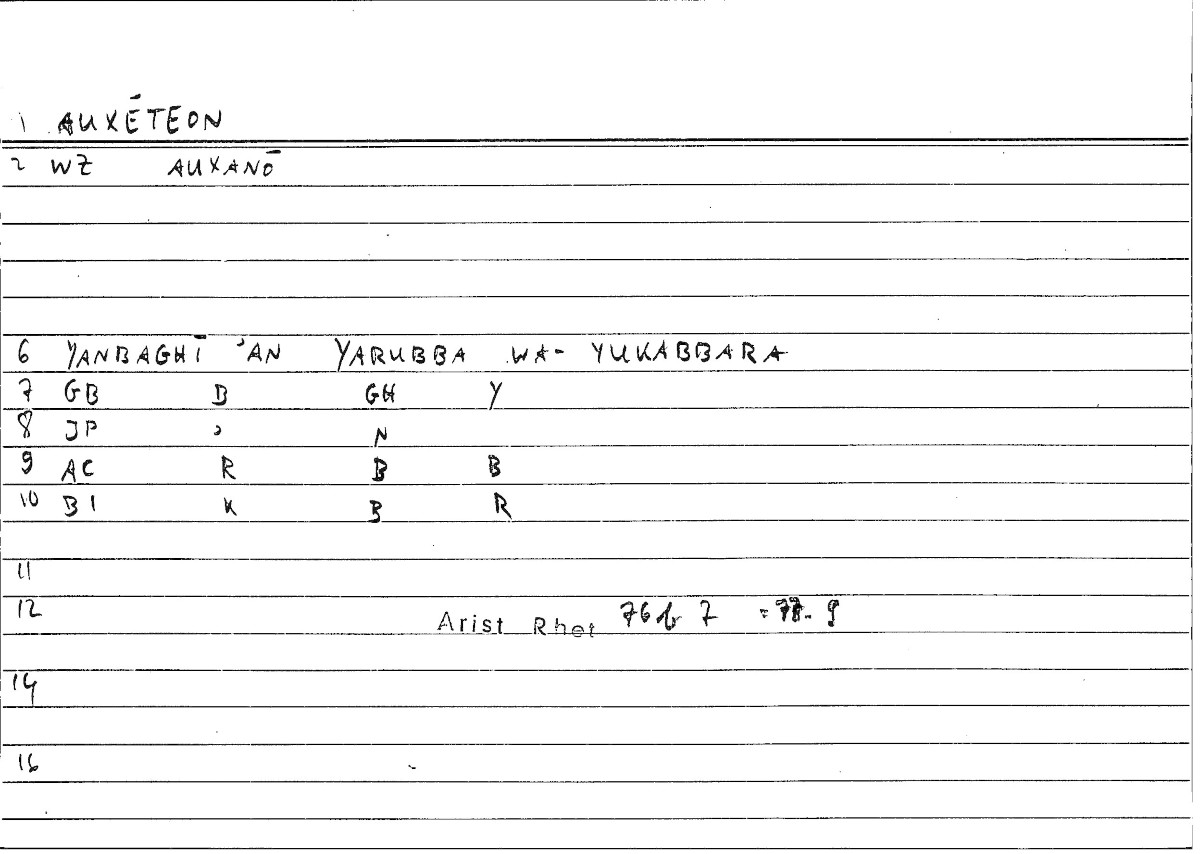 1 AUXĒTEON
2 WZ AUXANŌ
6 YANBAGHĪ ʾAN YARUBBA WA- YUKABBARA
7 GB B GH Y
8 JP ʾ N
9 AC R B B
10 BI K B R
11
12 Arist Rhet 76b 7 = 77. 9
14
16